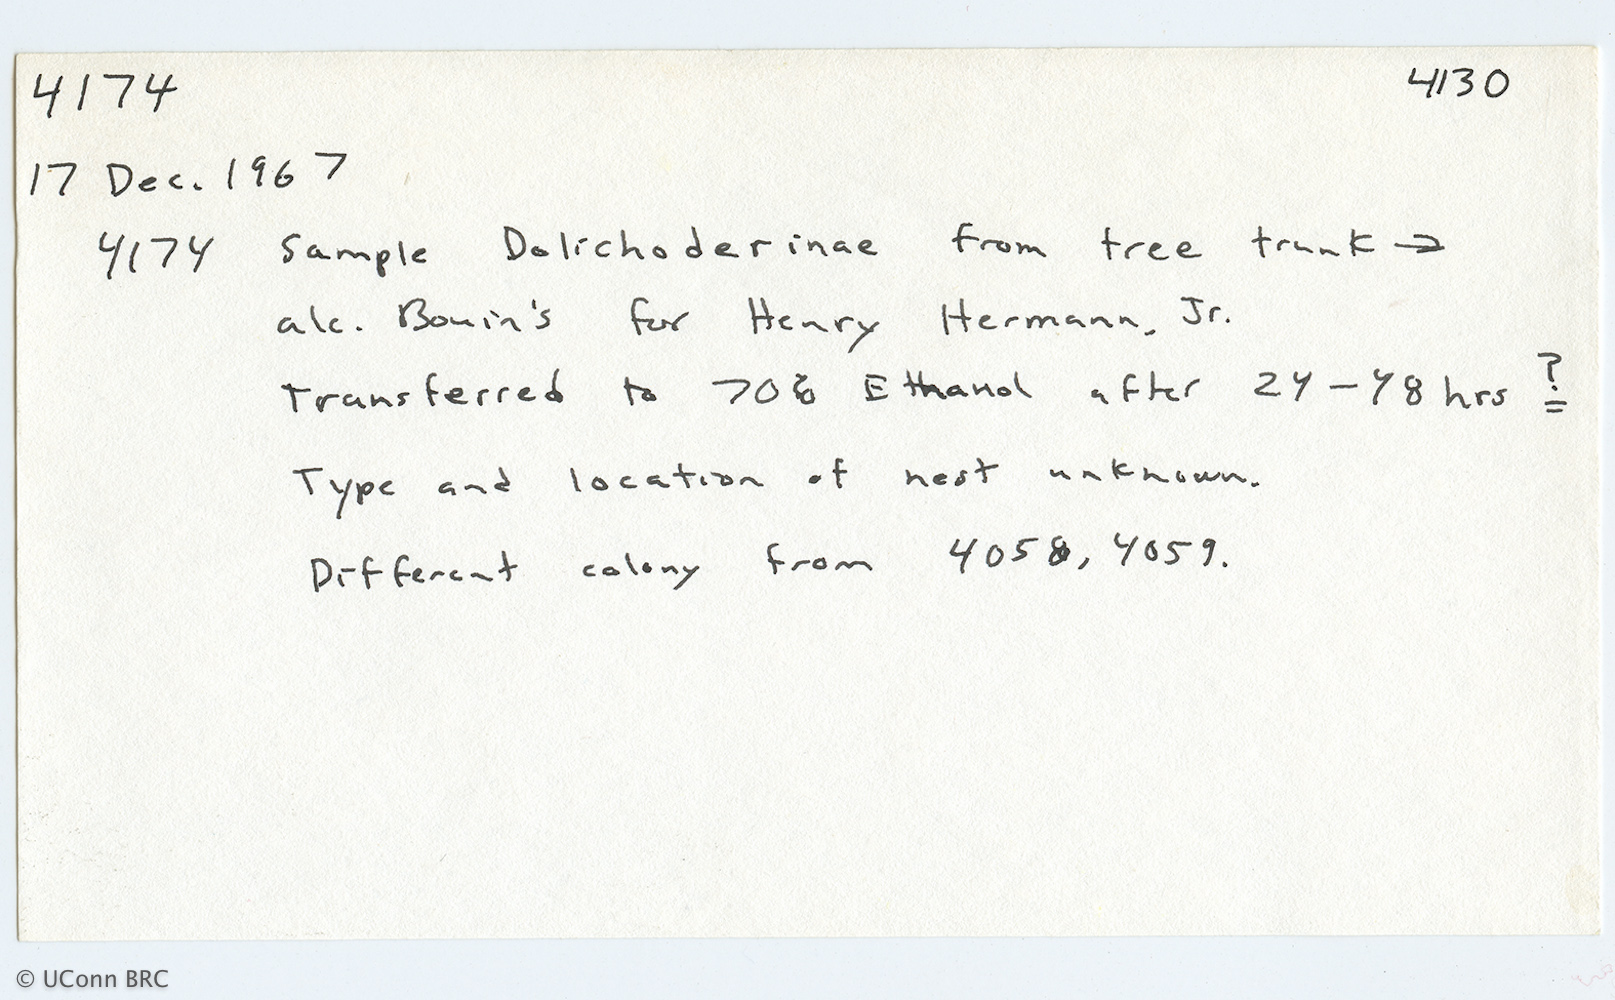 4174 4130
17 Dec. 1967
4174 Sample Dolichoderinae from tree trunk →
alc. Bouin's for Henry Hermann, Jr.
Transferred to 70% Ethanol after 24-48 hrs ?
Type and location of nest unknown.
Different colony from 4058, 4059.
© UConn BRC